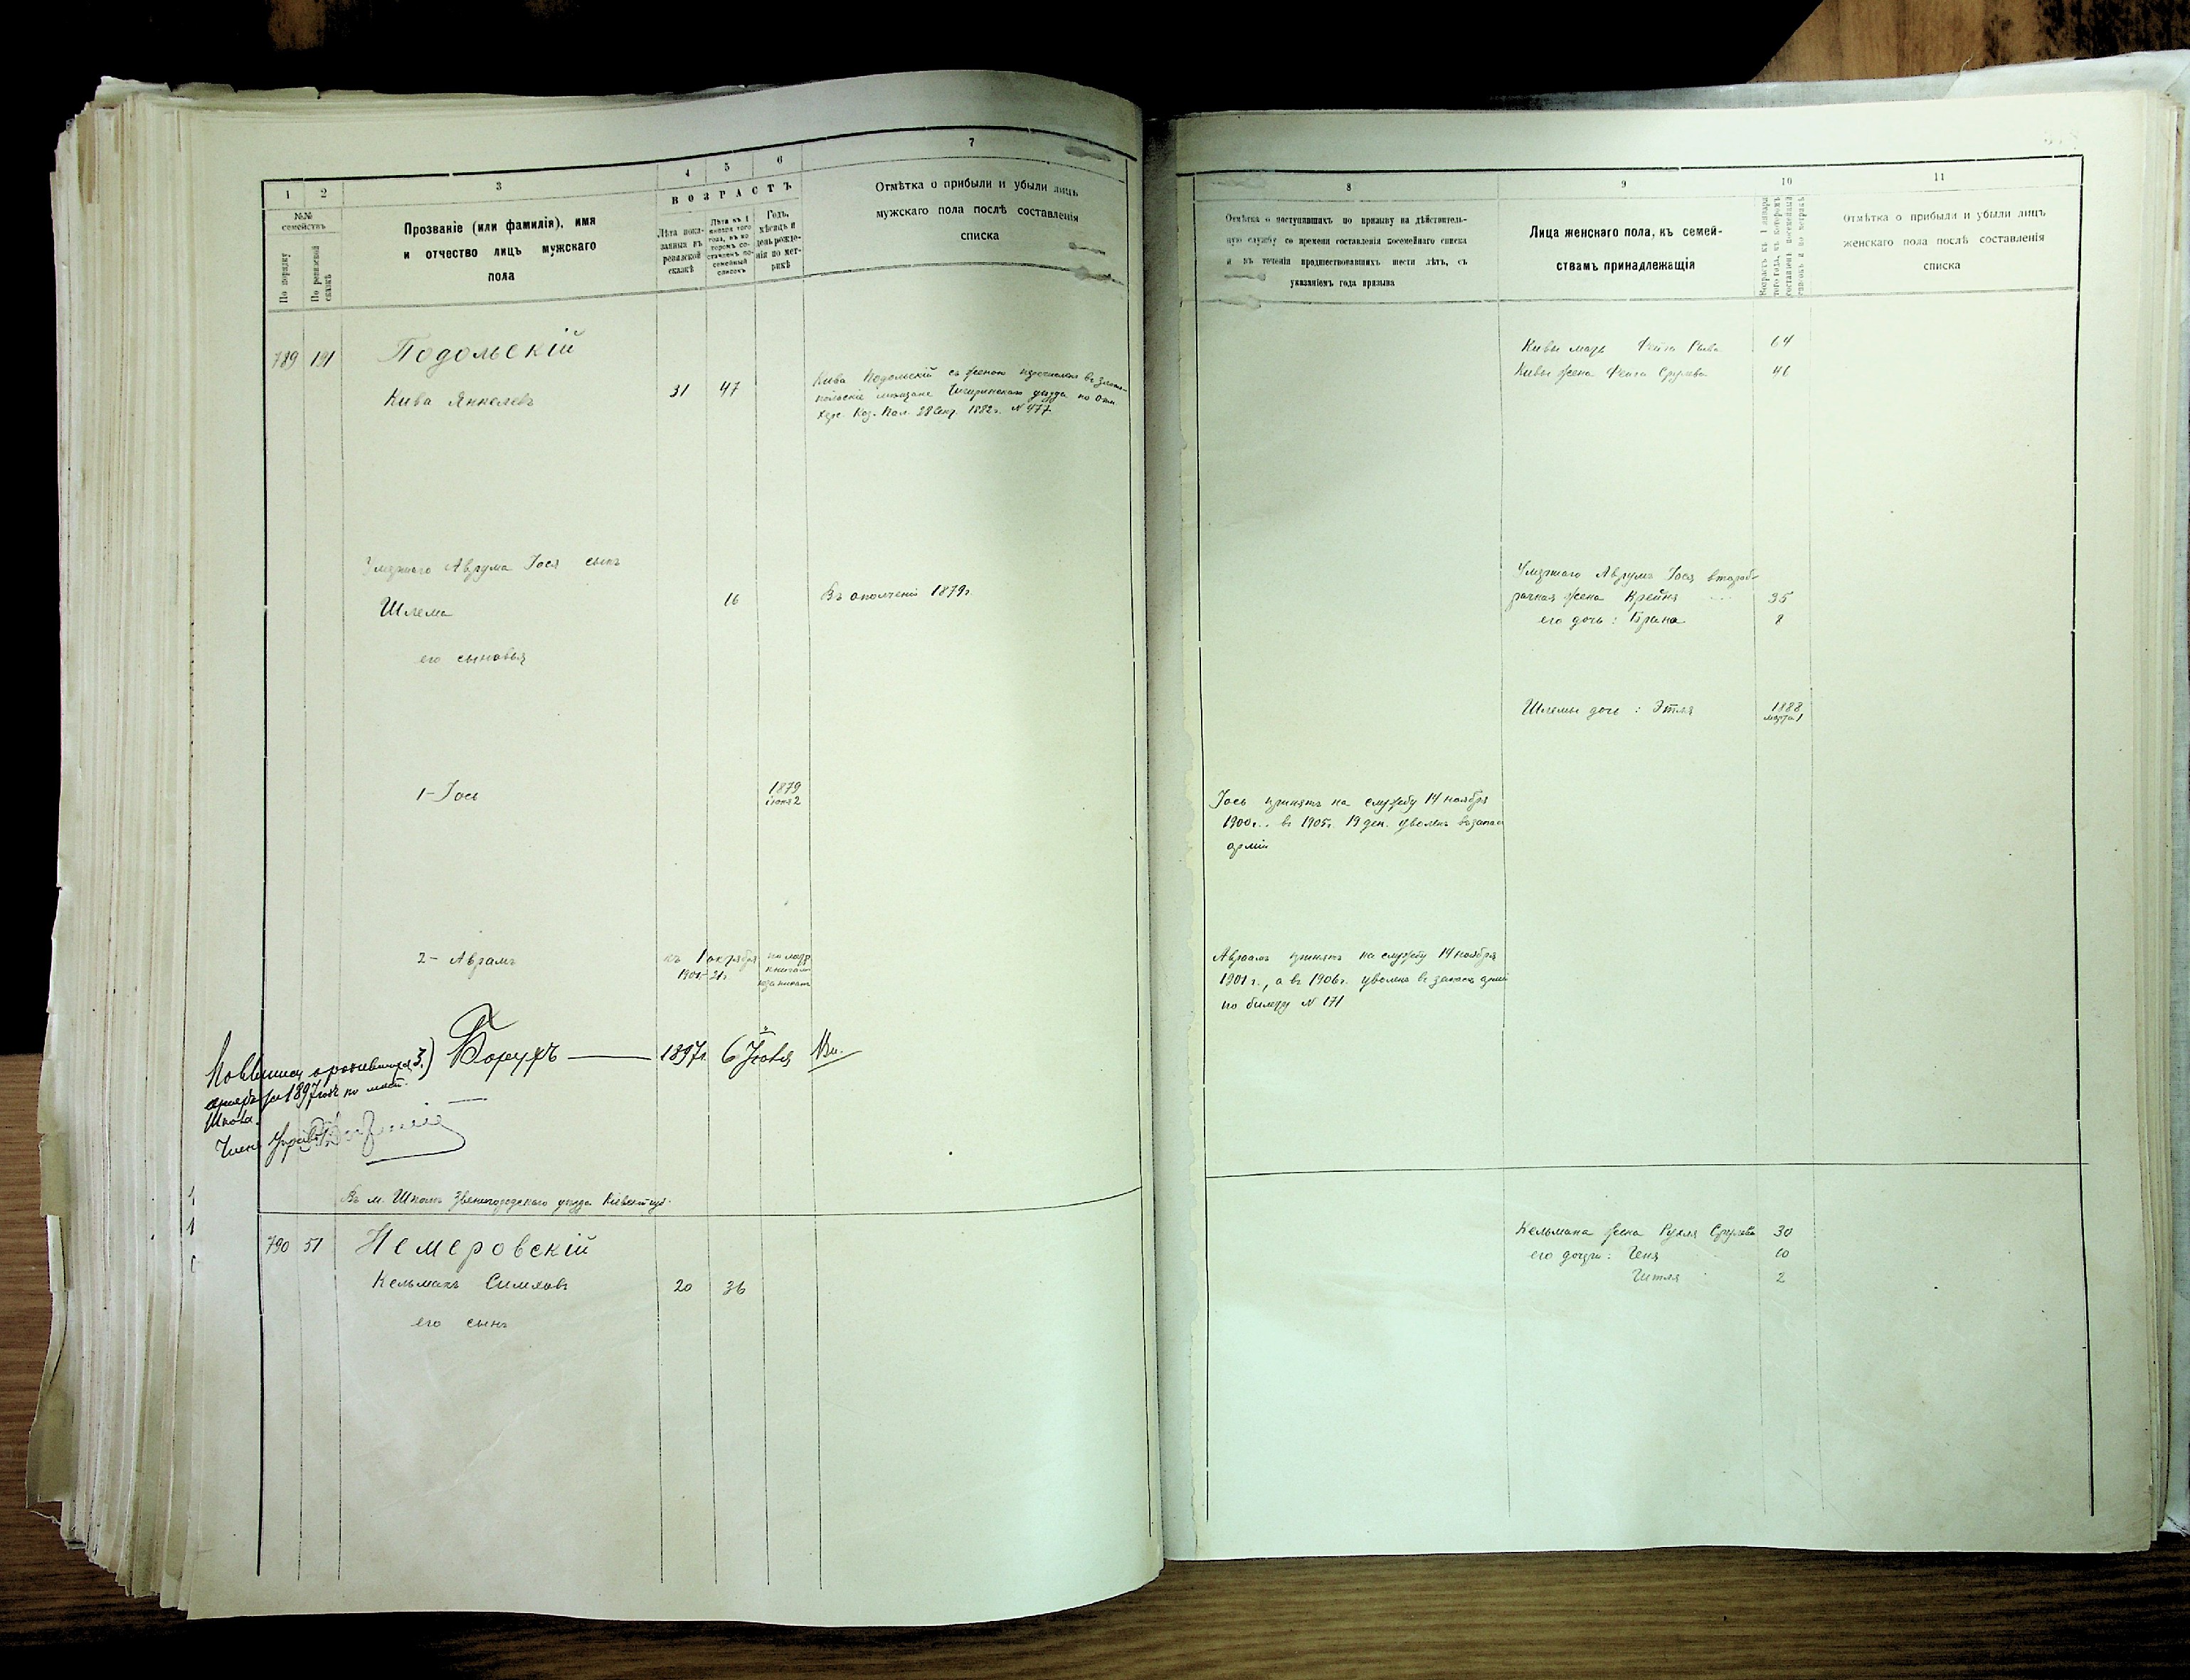 1 2 3 4 5 6 7
№№ семействъ
По порядку
По ревизской сказкѣ
Прозваніе (или фамилія), имя
и отчество лицъ мужскаго
пола
ВОЗРАСТЪ
Лѣта пока-
занныя въ
ревизской
сказкѣ
Лѣта къ 1
января того
года, въ ко-
торомъ со-
ставленъ по-
семейный
списокъ
Годъ,
мѣсяцъ и
день рожде-
нія по мет-
рикѣ
Отмѣтка о прибыли и убыли лицъ
мужскаго пола послѣ составленія
списка
789 191 Подольскій
Кива Янкелевъ 31 47
Кива Подольскій съ женою перечислен въ Злато-
польскіе мещане Чигиринскаго уезда по Отн.
Хер. Каз. Пал. 28 Сент. 1882 г. № 477
Умершаго Аврума Іося сынъ
Шлема 16 Въ ополченіи 1879 г.
его сыновья
1- Іось 1879
іюня 2
2- Аврамъ къ 1 октября
1901 - 21 г.
3.) Борухъ 1897 г. 6 Іюля
за 1897 годъ по мест.
Шпола.
Членъ Управы
Въ м. Шполѣ Звенигородскаго уезда Кіевской губ.
790 51 Немеровскій
Кельманъ Симховъ 20 36
его сынъ
8 9 10 11
Отмѣтка о поступившихъ по призыву на дѣйствитель-
ную службу со времени составленія посемейнаго списка
и въ теченіи предшествовавшихъ шести лѣтъ, съ
указаніемъ года призыва
Лица женскаго пола, къ семей-
ствамъ принадлежащія
Возрастъ къ 1 января
того года, въ которомъ
составленъ посемейный
списокъ и по метрикѣ
Отмѣтка о прибыли и убыли лицъ
женскаго пола послѣ составленія
списка
Кивы мать Фейга Рыва 64
Кивы жена Фейга Срулева 46
Умершаго Аврума Іося второб-
рачная жена Крейня 35
его дочь: Брана 8
Шлемы дочь: Этля 1888
марта 1
Іось принятъ на службу 14 ноября
1900 г. въ 1905 г. 19 дек. уволенъ въ запас
арміи
Авраамъ принятъ на службу 14 ноября
1901 г., а въ 1906 г. уволенъ въ запасъ арміи
по билету № 171
Кельмана жена Рухля Срулева 30
его дочери: Геня 10
Гитля 2